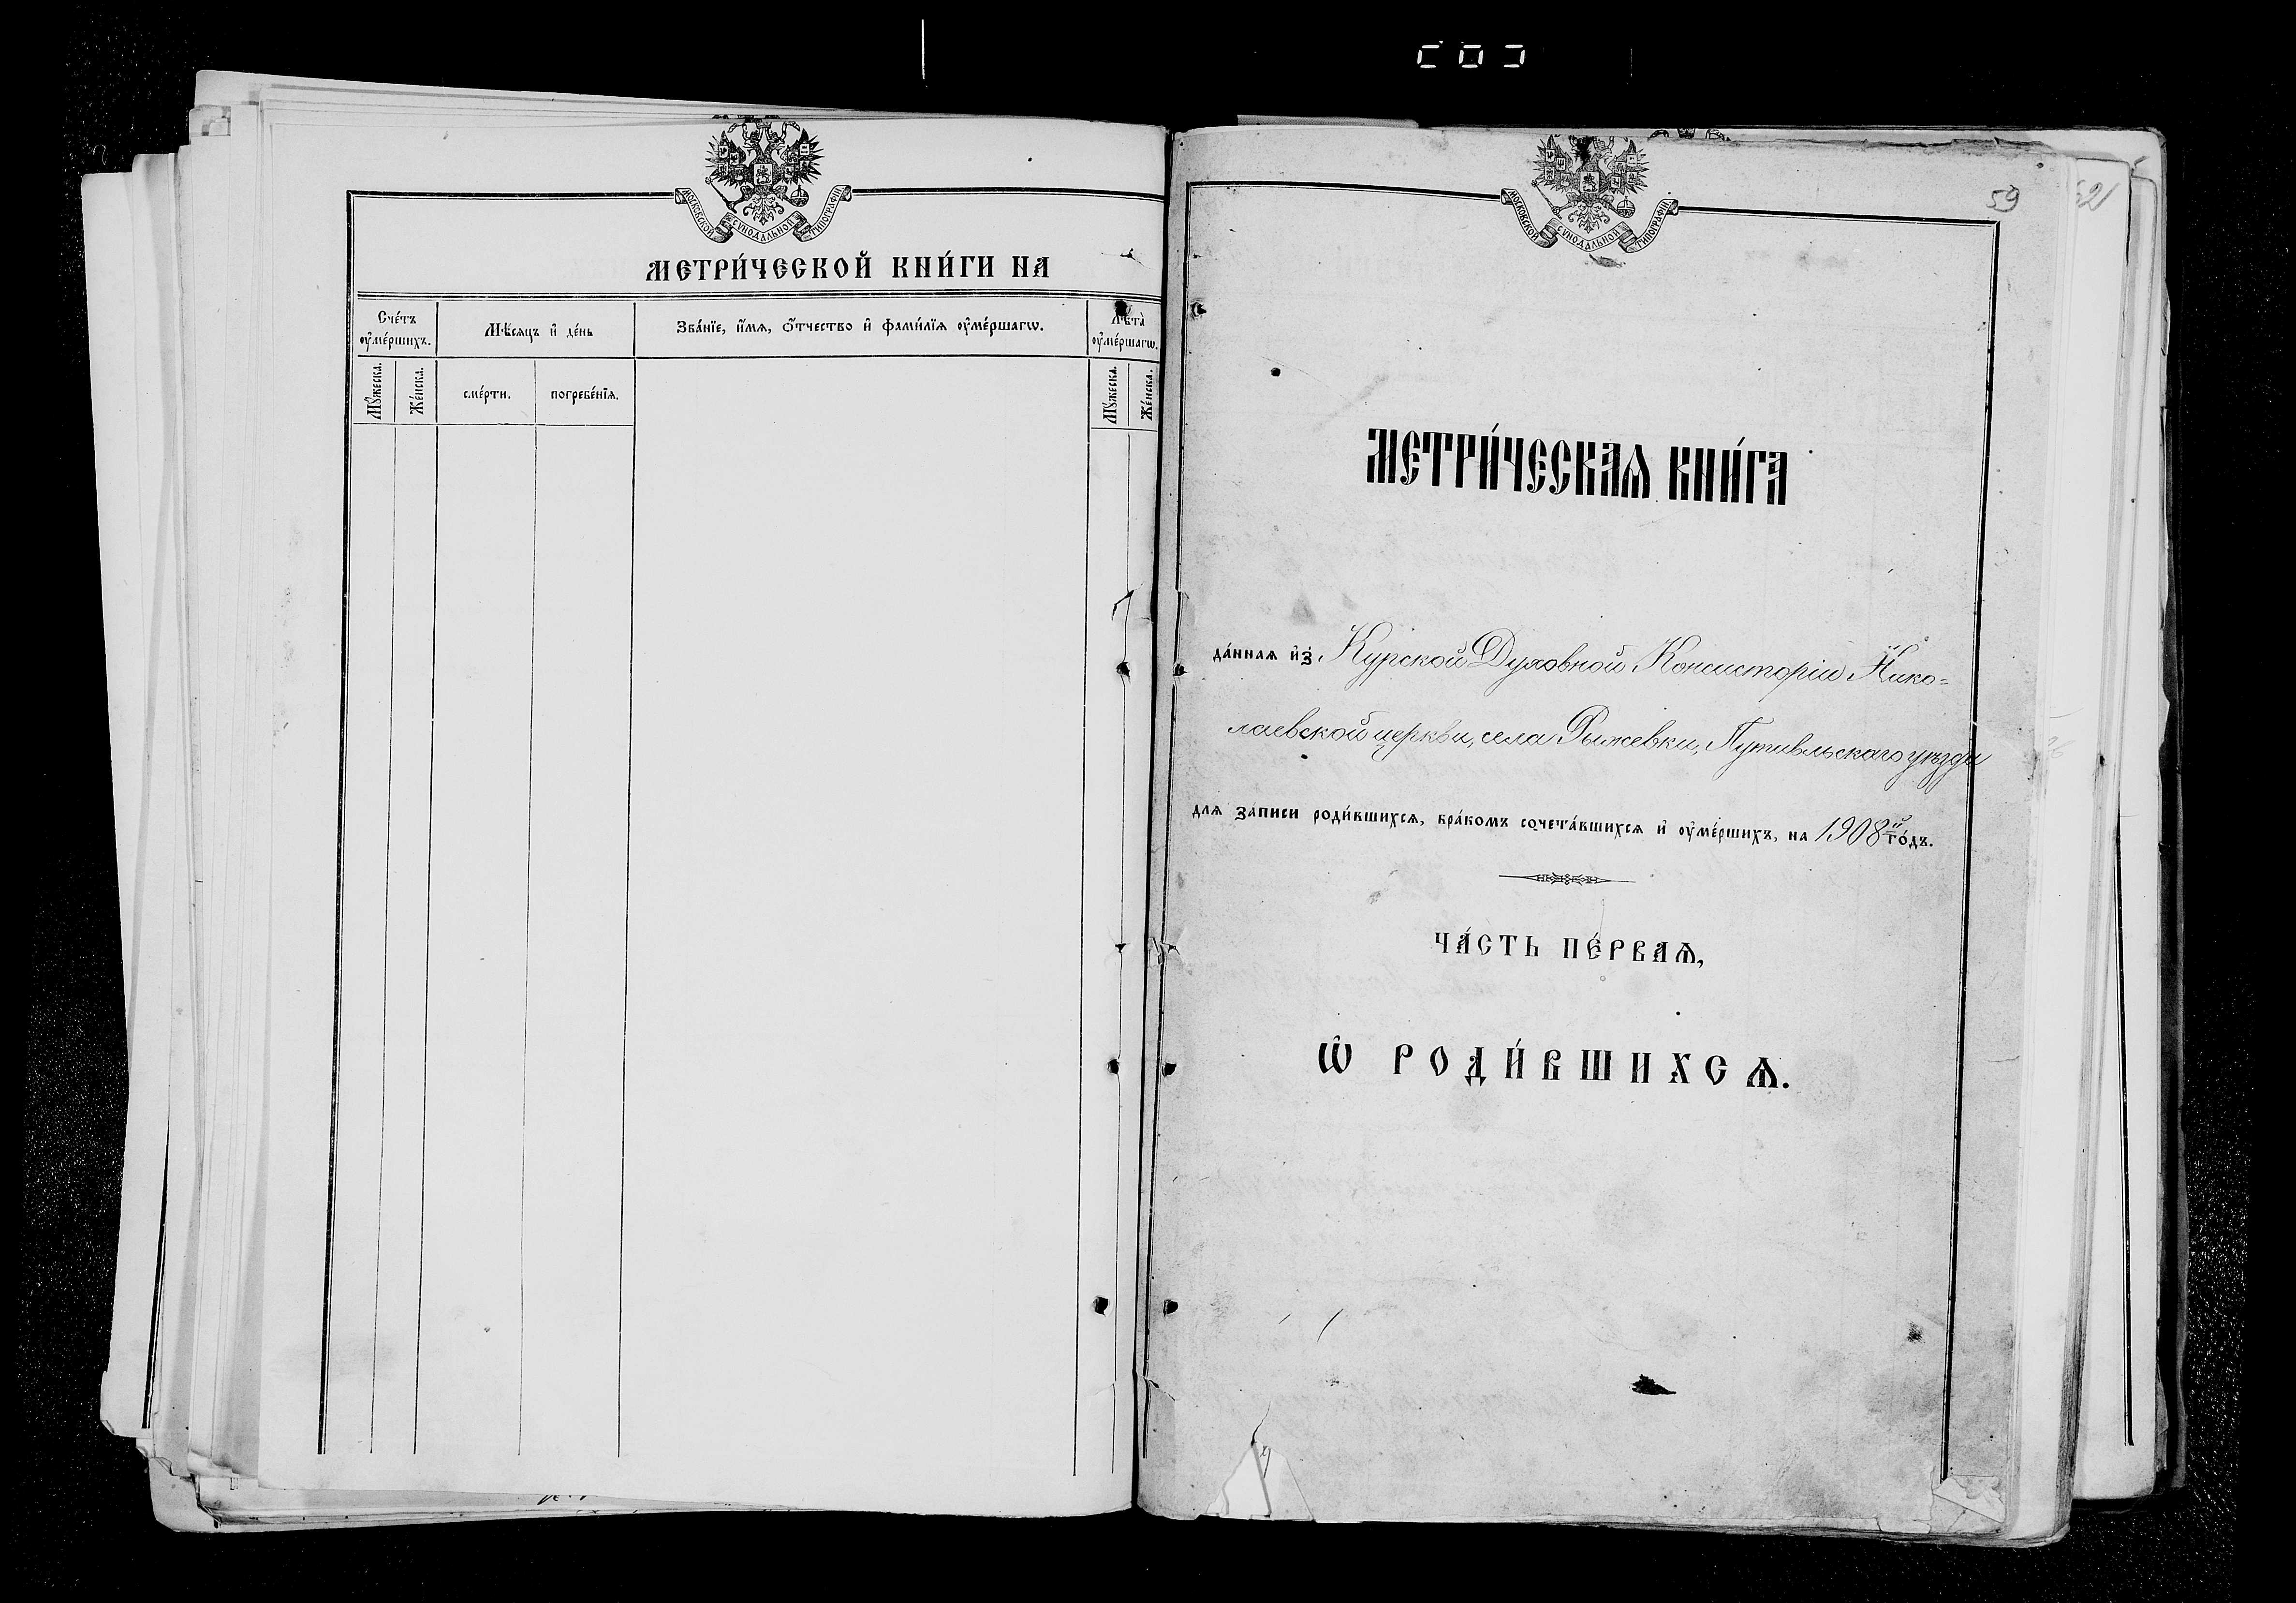 МОСКОВСКОЙ СѴНОДАЛЬНОЙ ТИПОГРАФІИ
МЕТРИ́ЧЕСКОЙ КНИ́ГИ НА
Сче́тъ ᲂу҆ме́ршихъ.
Мѣ́сяцъ и҆ де́нь
Зва́нїе, и҆́мѧ, ѻ҆́тчество и҆ фами́лїѧ ᲂу҆ме́ршагѡ.
Лѣ́та ᲂу҆ме́ршагѡ.
Мꙋ́жеска.
Же́нска.
сме́рти.
погребе́нїѧ.
Мꙋ́жеска.
Же́нска.
59
62
МОСКОВСКОЙ СѴНОДАЛЬНОЙ ТИПОГРАФІИ
МЕТРИ́ЧЕСКАѦ КНИ́ГА
да́ннаѧ и҆з̾ Курской Духовной Консисторіи Нико=
лаевской церкви, села Рыжевки, Путивльскаго уѣзда
длѧ записи роди́вшихсѧ, бра́комъ сочета́вшихсѧ и҆ ᲂу҆ме́ршихъ, на 1908й го́дъ.
ЧА́СТЬ ПЕ́РВАѦ,
Ѡ҆ РОДИ́ВШИХСѦ.